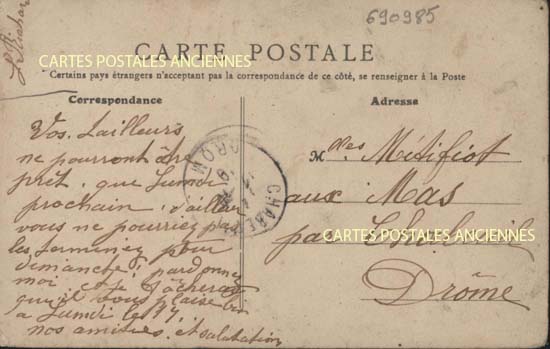 690985
CARTE POSTALE
CARTES POSTALES ANCIENNES
Certains pays étrangers n'acceptant pas la correspondance de ce côté, se renseigner à la Poste
Correspondance
Vos tailleurs
ne pourront être
prêt que Lundi
prochain d'ailleur
vous ne pourriez pas
les terminez pour
dimanche! pardonnez
moi je tâcherai
qu'il vous plaise
a Lundi le 17
nos amitiés et salutation
Adresse
Mlles Métifiot
aux Mas
par
CARTES POSTALES ANCIENNES
Drôme
CHABE
DROM